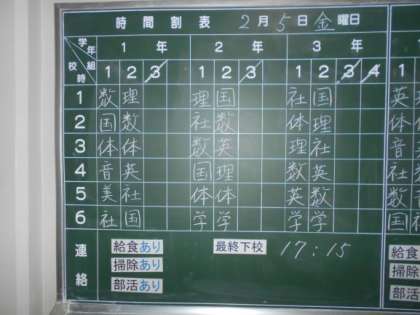 時間割表 2月5日金曜日
学年 組 校時 1年 2年 3年
1 2 3 1 2 3 1 2 3 4 1
1 数 理 理 国 社 国 英
2 国 数 社 数 体 理 体
3 体 体 数 英 理 社 音
4 音 英 国 理 数 英 社
5 美 社 体 体 英 数 数
6 社 国 学 学 学 学 国
連絡 給食あり 最終下校 17:15 給食
掃除あり 掃除
部活あり 部活